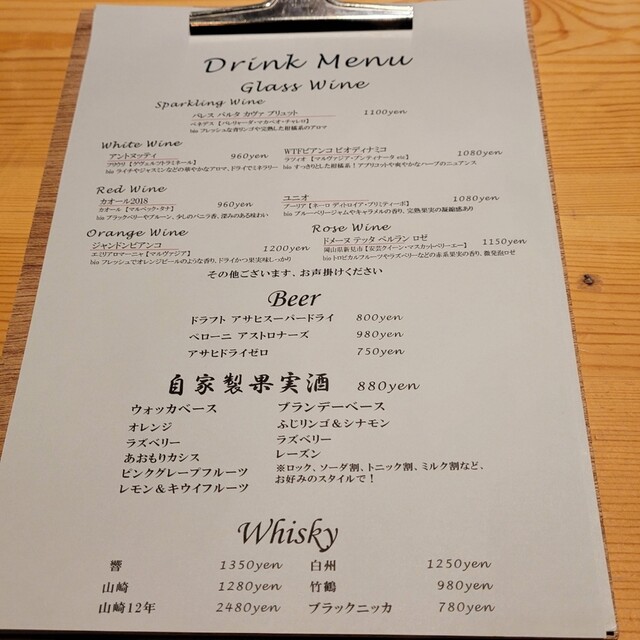 Drink Menu
Glass Wine
Sparkling Wine
パレス バルタ カヴァ ブリュット 1100yen
ペネデス【パレリャーダ・マカベオ・チャレロ】
bio フレッシュな青リンゴや完熟した柑橘系のアロマ
White Wine
アントヌッティ 960yen
フリウリ【ゲヴェルツトラミネール】
bio ライチやジャスミンなどの華やかなアロマ、ドライでミネラリー
WTFビアンコ ビオディナミコ 1080yen
ラツィオ【マルヴァジア・プンティナータ etc】
bio すっきりとした柑橘系！アプリコットや爽やかなハーブのニュアンス
Red Wine
カオール2018 960yen
カオール【マルベック・タナ】
bio ブラックベリーやプルーン、少しのバニラ香、深みのある味わい
ユニオ 1080yen
プーリア【ネーロ ディトロイア・プリミティーボ】
bio ブルーベリージャムやキャラメルの香り、完熟果実の凝縮感あり
Orange Wine
ジャンドンビアンコ 1200yen
エミリアロマーニャ【マルヴァジア】
bio フレッシュでオレンジピールのような香り、ドライかつ果実味しっかり
Rose Wine
ドメーヌ テッタ ペルラン ロゼ 1150yen
岡山県新見市【安芸クイーン・マスカットベリーエー】
bio トロピカルフルーツやラズベリーなどの赤系果実の香り、微発泡ロゼ
その他ございます、お声掛けください
Beer
ドラフト アサヒスーパードライ 800yen
ペローニ アストロナーズ 980yen
アサヒドライゼロ 750yen
自家製果実酒 880yen
ウォッカベース
オレンジ
ラズベリー
あおもりカシス
ピンクグレープフルーツ
レモン＆キウイフルーツ
ブランデーベース
ふじリンゴ＆シナモン
ラズベリー
レーズン
※ロック、ソーダ割、トニック割、ミルク割など、
お好みのスタイルで！
Whisky
響 1350yen 白州 1250yen
山崎 1280yen 竹鶴 980yen
山崎12年 2480yen ブラックニッカ 780yen